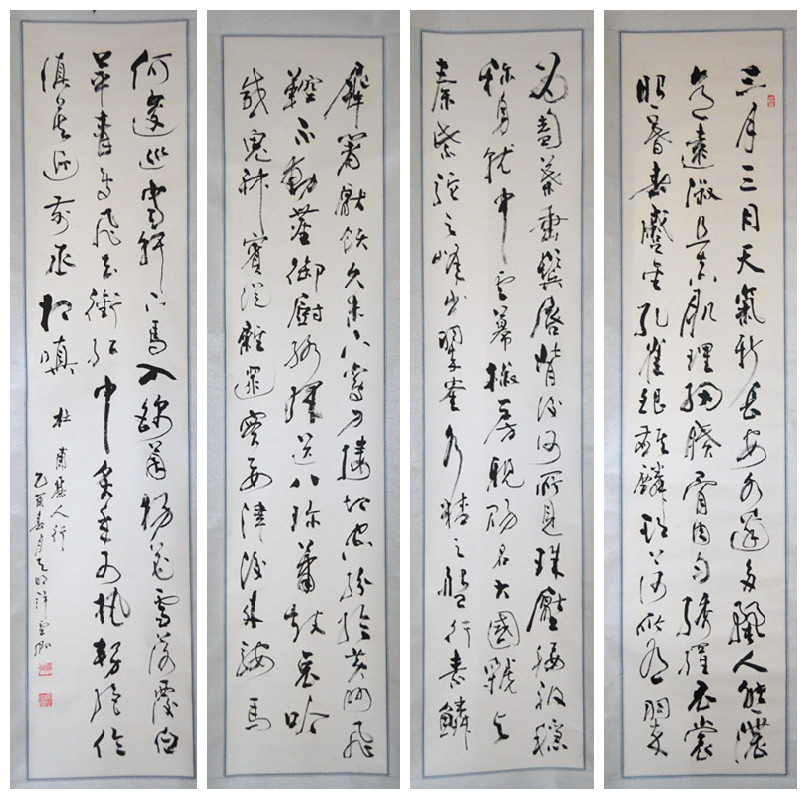 三月三日天氣新長安水邊多麗人態濃
意遠淑且真肌理細膩骨肉勻繡羅衣裳
照暮春蹙金孔雀銀麒麟頭上何所有翠
為㔩葉垂鬢唇背後何所見珠壓腰衱穩
稱身就中雲幕椒房親賜名大國虢與
秦紫駝之峰出翠釜水精之盤行素鱗
犀箸厭飫久未下鸞刀縷切空紛綸黃門飛
鞚不動塵御廚絡繹送八珍簫鼓哀吟
感鬼神賓從雜遝實要津後來鞍馬
何逡巡當軒下馬入錦茵楊花雪落覆白
蘋青鳥飛去銜紅巾炙手可熱勢絕倫
慎莫近前丞相嗔
杜甫麗人行
乙酉春月